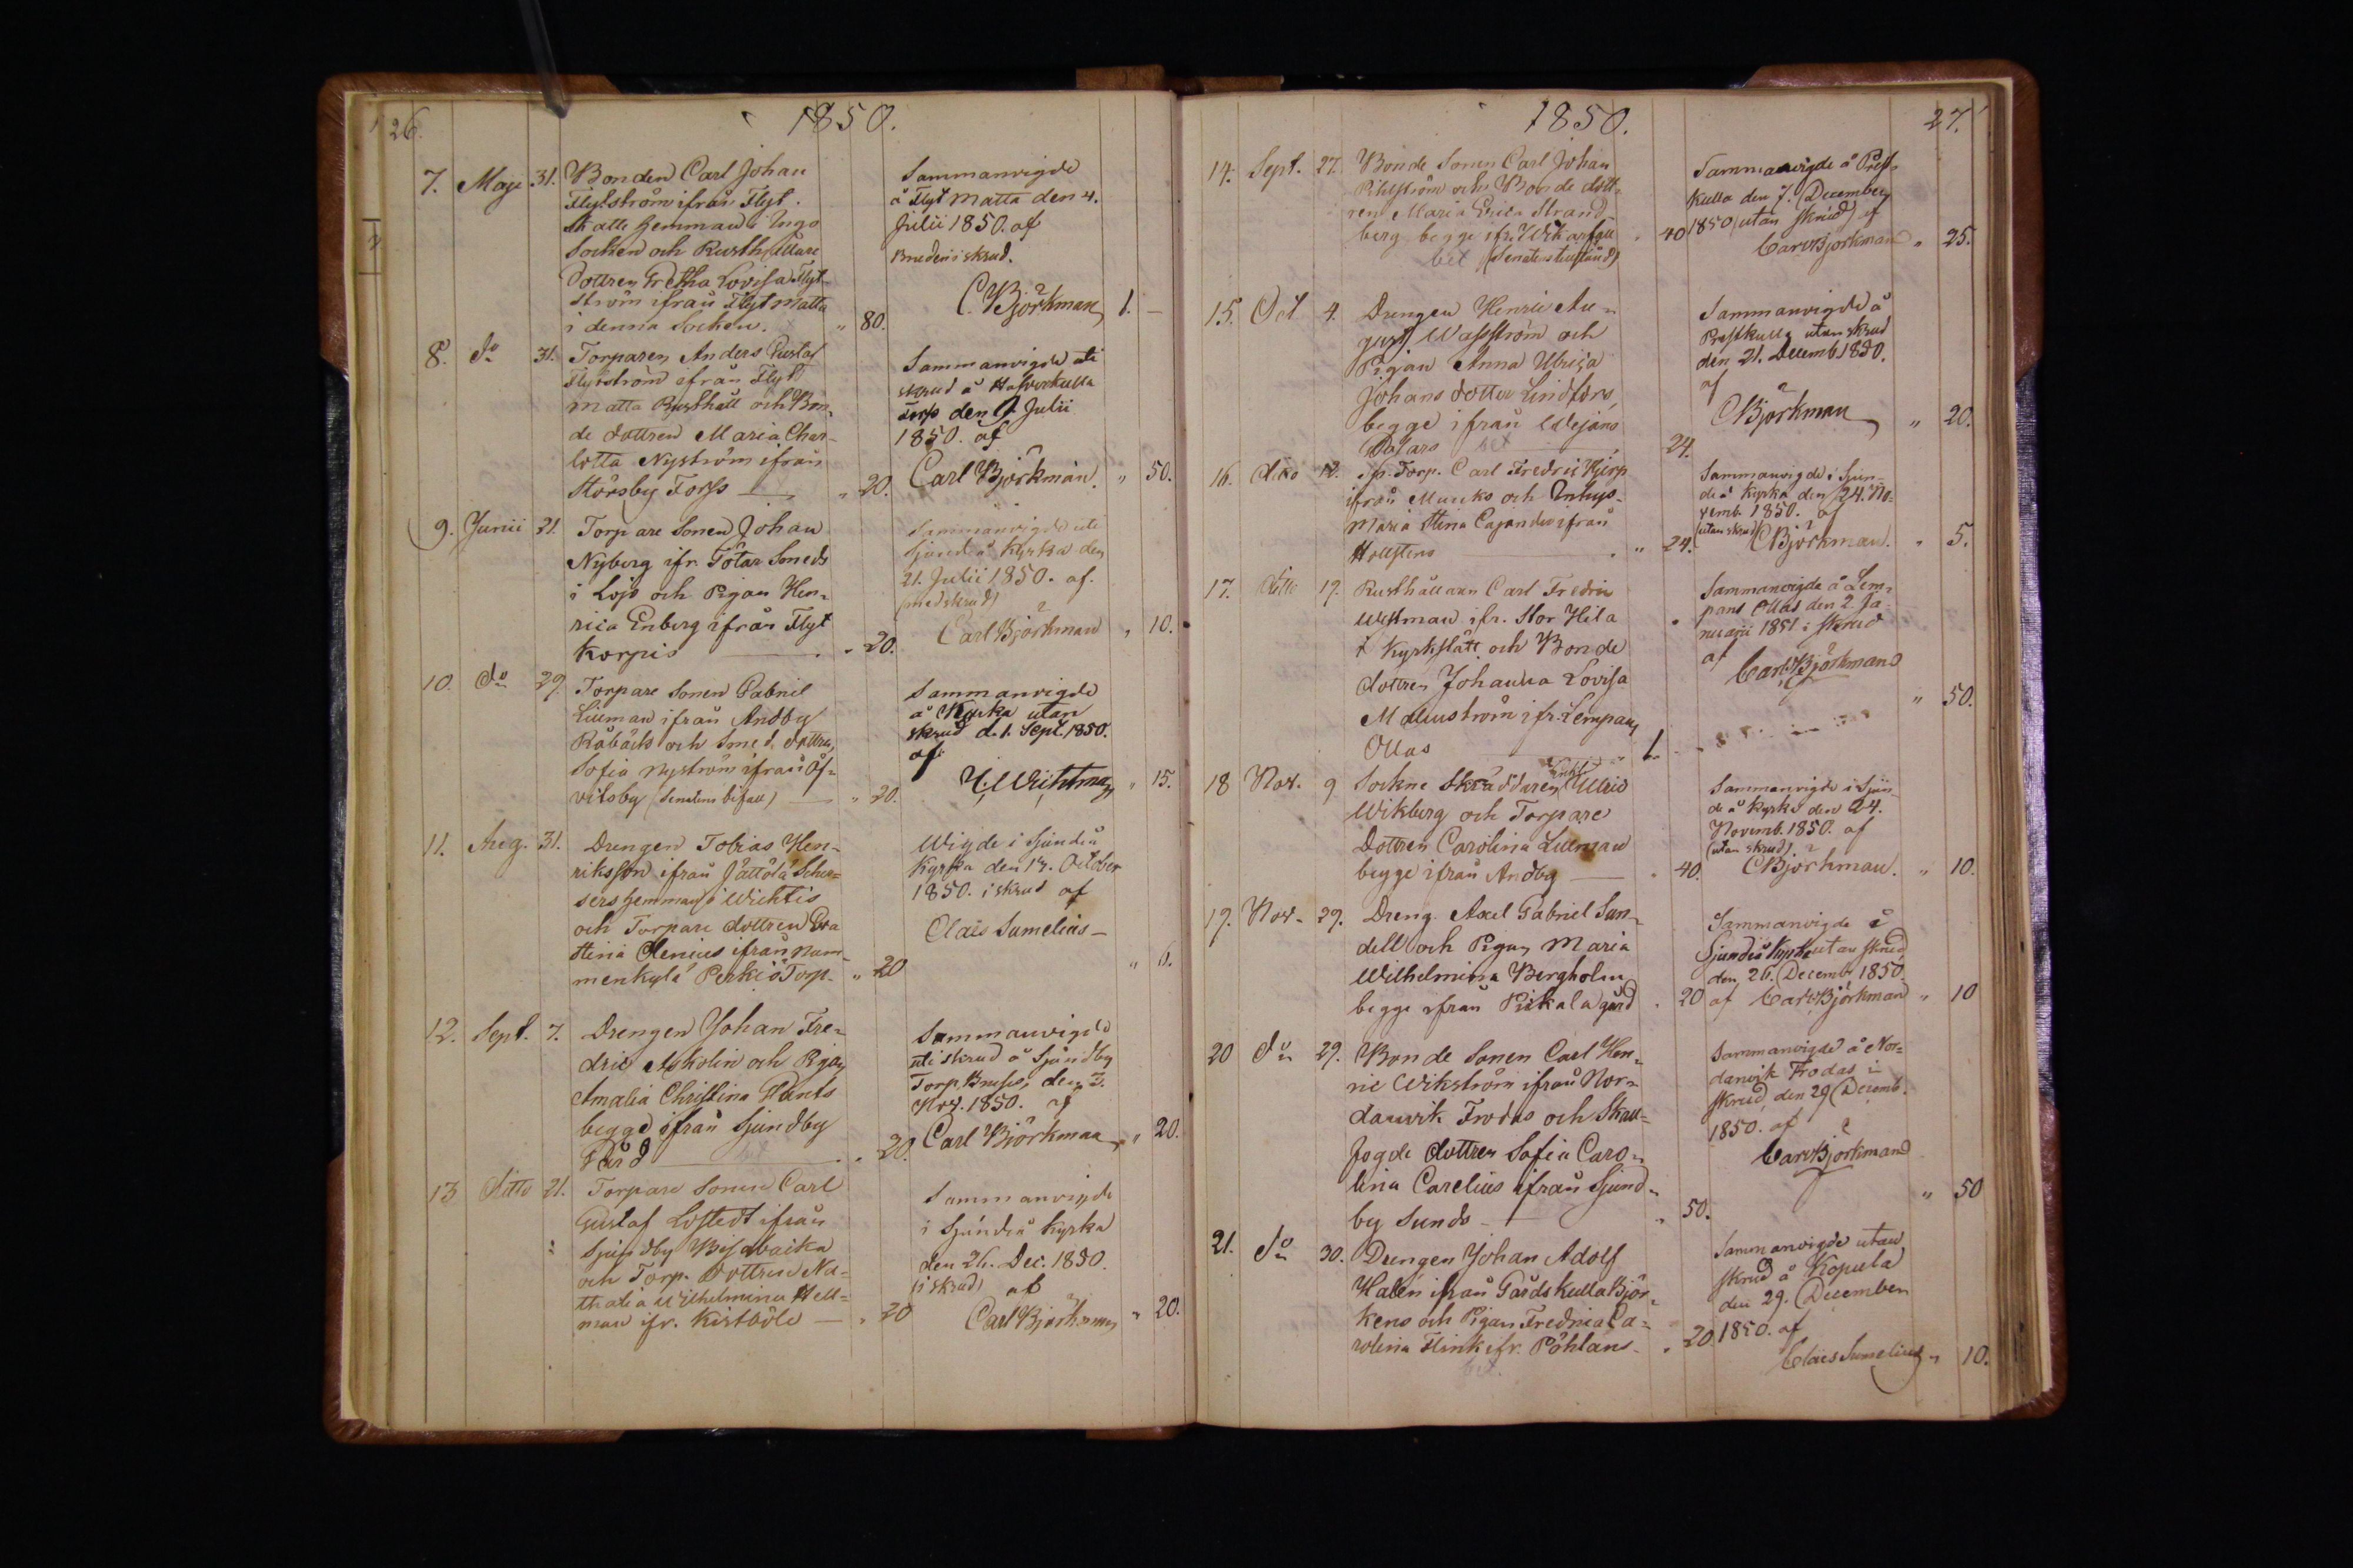 26.
1850.
7. Maji 31. Bonden Carl Johan
Flytström ifrån Flyt
skatte hemman i Ingo
Socken och Rusthållare
dottren Gretha Lovisa Flyt-
ström ifrån Flyt matta
i denna Socken. " 80.
Sammanvigde
å Flyt matta den 4.
Julii 1850. af
Bruden i skrud.
C. Björkman 1. —
8. do 31. Torparen Anders Gustaf
Flytström ifrån Flyt
matta Rusthåll och Bon-
de dottren Maria Char-
lotta Nyström ifrån
Störsby Torss — " 20.
Sammanvigde uti
skrud å
Torp den Julii
1850. af
Carl Björkman. " 50.
9. Junii 21. Torpare Sonen Johan
Nyberg ifr. Götar Smeds
i Lojo och Pigan Hen-
rica Enberg ifrån Flyt
Korpis — " 20.
Sammanvigde uti
Sjundeå Kyrka den
21. Julii 1850. af.
(med skrud)
Carl Björkman " 10.
10. do 29. Torpare Sonen Gabriel
Liliman ifrån Andby
Råbäck och Smed dottren
Sofia Nyström ifrån Öf-
vitsby (Senatens bifall) — " 20.
Sammanvigde
å Kyrka utan
skrud d. 1. Sept. 1850.
af
Wichtman " 15.
11. Aug. 31. Drengen Tobias Hen-
riksson ifrån Jättölä Scheu-
sers hemman i Wichtis
och Torpare dottren Eva
Stina Clenius ifrån Num-
menkylä Perkiö Torp. " 20
Wigde i Sjundeå
Kyrka den 14. October
1850. i skrud af
Claës Sumelius —
" 6.
12. Sept. 7. Drengen Johan Fre-
dric Askolin och Pigan
Amalia Christina Hants
begge ifrån Sjundby
Gård — " 20.
Sammanvigde
uti skrud å Sjundby
Torp Bruses, den 3.
Nov. 1850. af
Carl Björkman " 20.
13 Ditto 21. Torpare Sonen Carl
Gustaf Löfstedt ifrån
Sjundby Wisabacka
och Torp. Dottren Na-
thalia Wilhelmina Hell-
man ifr. Kistböle — " 20
Sammanvigde
i Sjundeå Kyrka
den 26. Dec. 1850.
(i skrud) af
Carl Björkman " 20.
1850.
27.
14. Sept. 27. Bonde Sonen Carl Johan
Pihlström och Bonde dott-
ren Maria Erica Strand-
berg begge ifr. Wikarskull
bet (Senatens tillstånd) " 40
Sammanvigde å Prest-
kulla den 7. December
1850 (utan skrud) af
Carl Björkman " 25.
15. Oct 4. Drengen Henric Au-
gust Wasström och
Pigan Anna Ulrica
Johans dotter Lindfors,
begge ifrån Wejans
Dalars bet 24.
Sammanvigde å
Prestkulla utan skrud
den 21. Decemb 1850.
af
CBjörkman " 20.
16. dito 12. Sp. Torp. Carl Fredric Hjerp
ifrån Munks och Inhys.
Maria Stina Cajander ifrån
Hollstens " 24.
Sammanvigde i Sjun-
deå Kyrka den 24. No-
vemb. 1850. af
(utan skrud) CBjörkman. " 5.
17. ditto 19. Rusthållaren Carl Fredric
Westman ifr. Stor Hila
i Kyrkslätt och Bonde
dottren Johanna Lovisa
Malmström ifr. Lempans
Ollas 1. —
Sammanvigde å Lem-
pans Ollas den 2. Ja-
nuarii 1851 i skrud
af Carl Björkman
" 50.
18 Nov. 9 Sockne Skräddaren Ulric
Wikberg och Torpare
Dottren Carolina Lilliman
begge ifrån Andby — " 40.
Sammanvigde i Sjun-
deå Kyrka den 24.
Novemb. 1850. af
(utan skrud).
CBjörkman. " 10.
19. Nov. 29. Dreng. Axel Gabriel Sun-
dell och Pigan Maria
Wilhelmina Bergholm
begge ifrån Pickala gård " 20
Sammanvigde i
Sjundeå Kyrka utan skrud,
den 26. Decemb 1850.
af Carl Björkman " 10
20 do 29. Bonde Sonen Carl Hen-
ric Wikström ifrån Nor-
danvik Frodas och Skall-
fogde dottren Sofia Caro-
lina Carelius ifrån Sjund-
by Sunds — " 50.
Sammanvigde å Nor-
danvik Frodas i
skrud, den 29 Decemb.
1850. af
Carl Björkman
" 50
21. do 30. Drengen Johan Adolf
Halén ifrån Gårdskulla Björ-
kens och Pigan Fredrica Ca-
rolina Flink ifr. Pöhlans " 20
bet.
Sammanvigde utan
skrud å Kopula
den 29. December
1850. af
Claës Sumelius " 10.